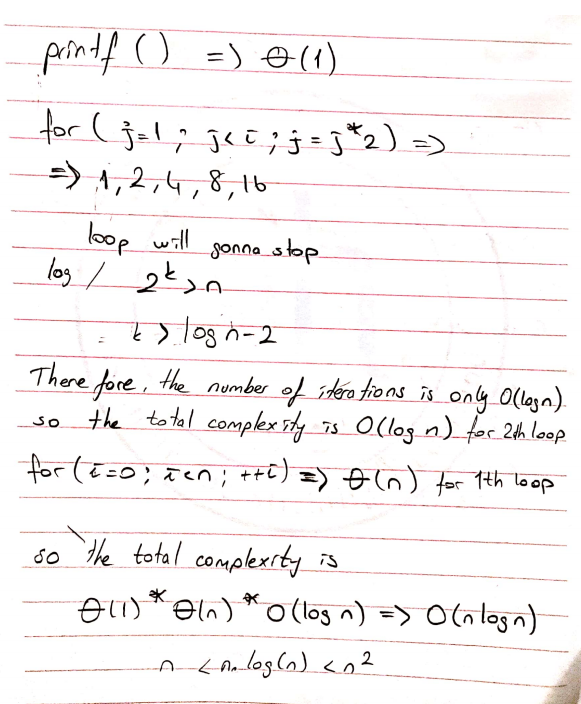 printf () => Θ(1)
for ( j=1 ; j<i ; j = j*2) =>
=> 1, 2, 4, 8, 16
loop will gonna stop
log / 2^k > n
k > log n-2
There fore, the number of iterations is only O(logn)
so the total complexity is O(log n) for 2th loop
for (i=0; i<n; ++i) => Θ(n) for 1th loop
so the total complexity is
Θ(1) * Θ(n) * O(log n) => O(n logn)
n < n. log(n) < n^2